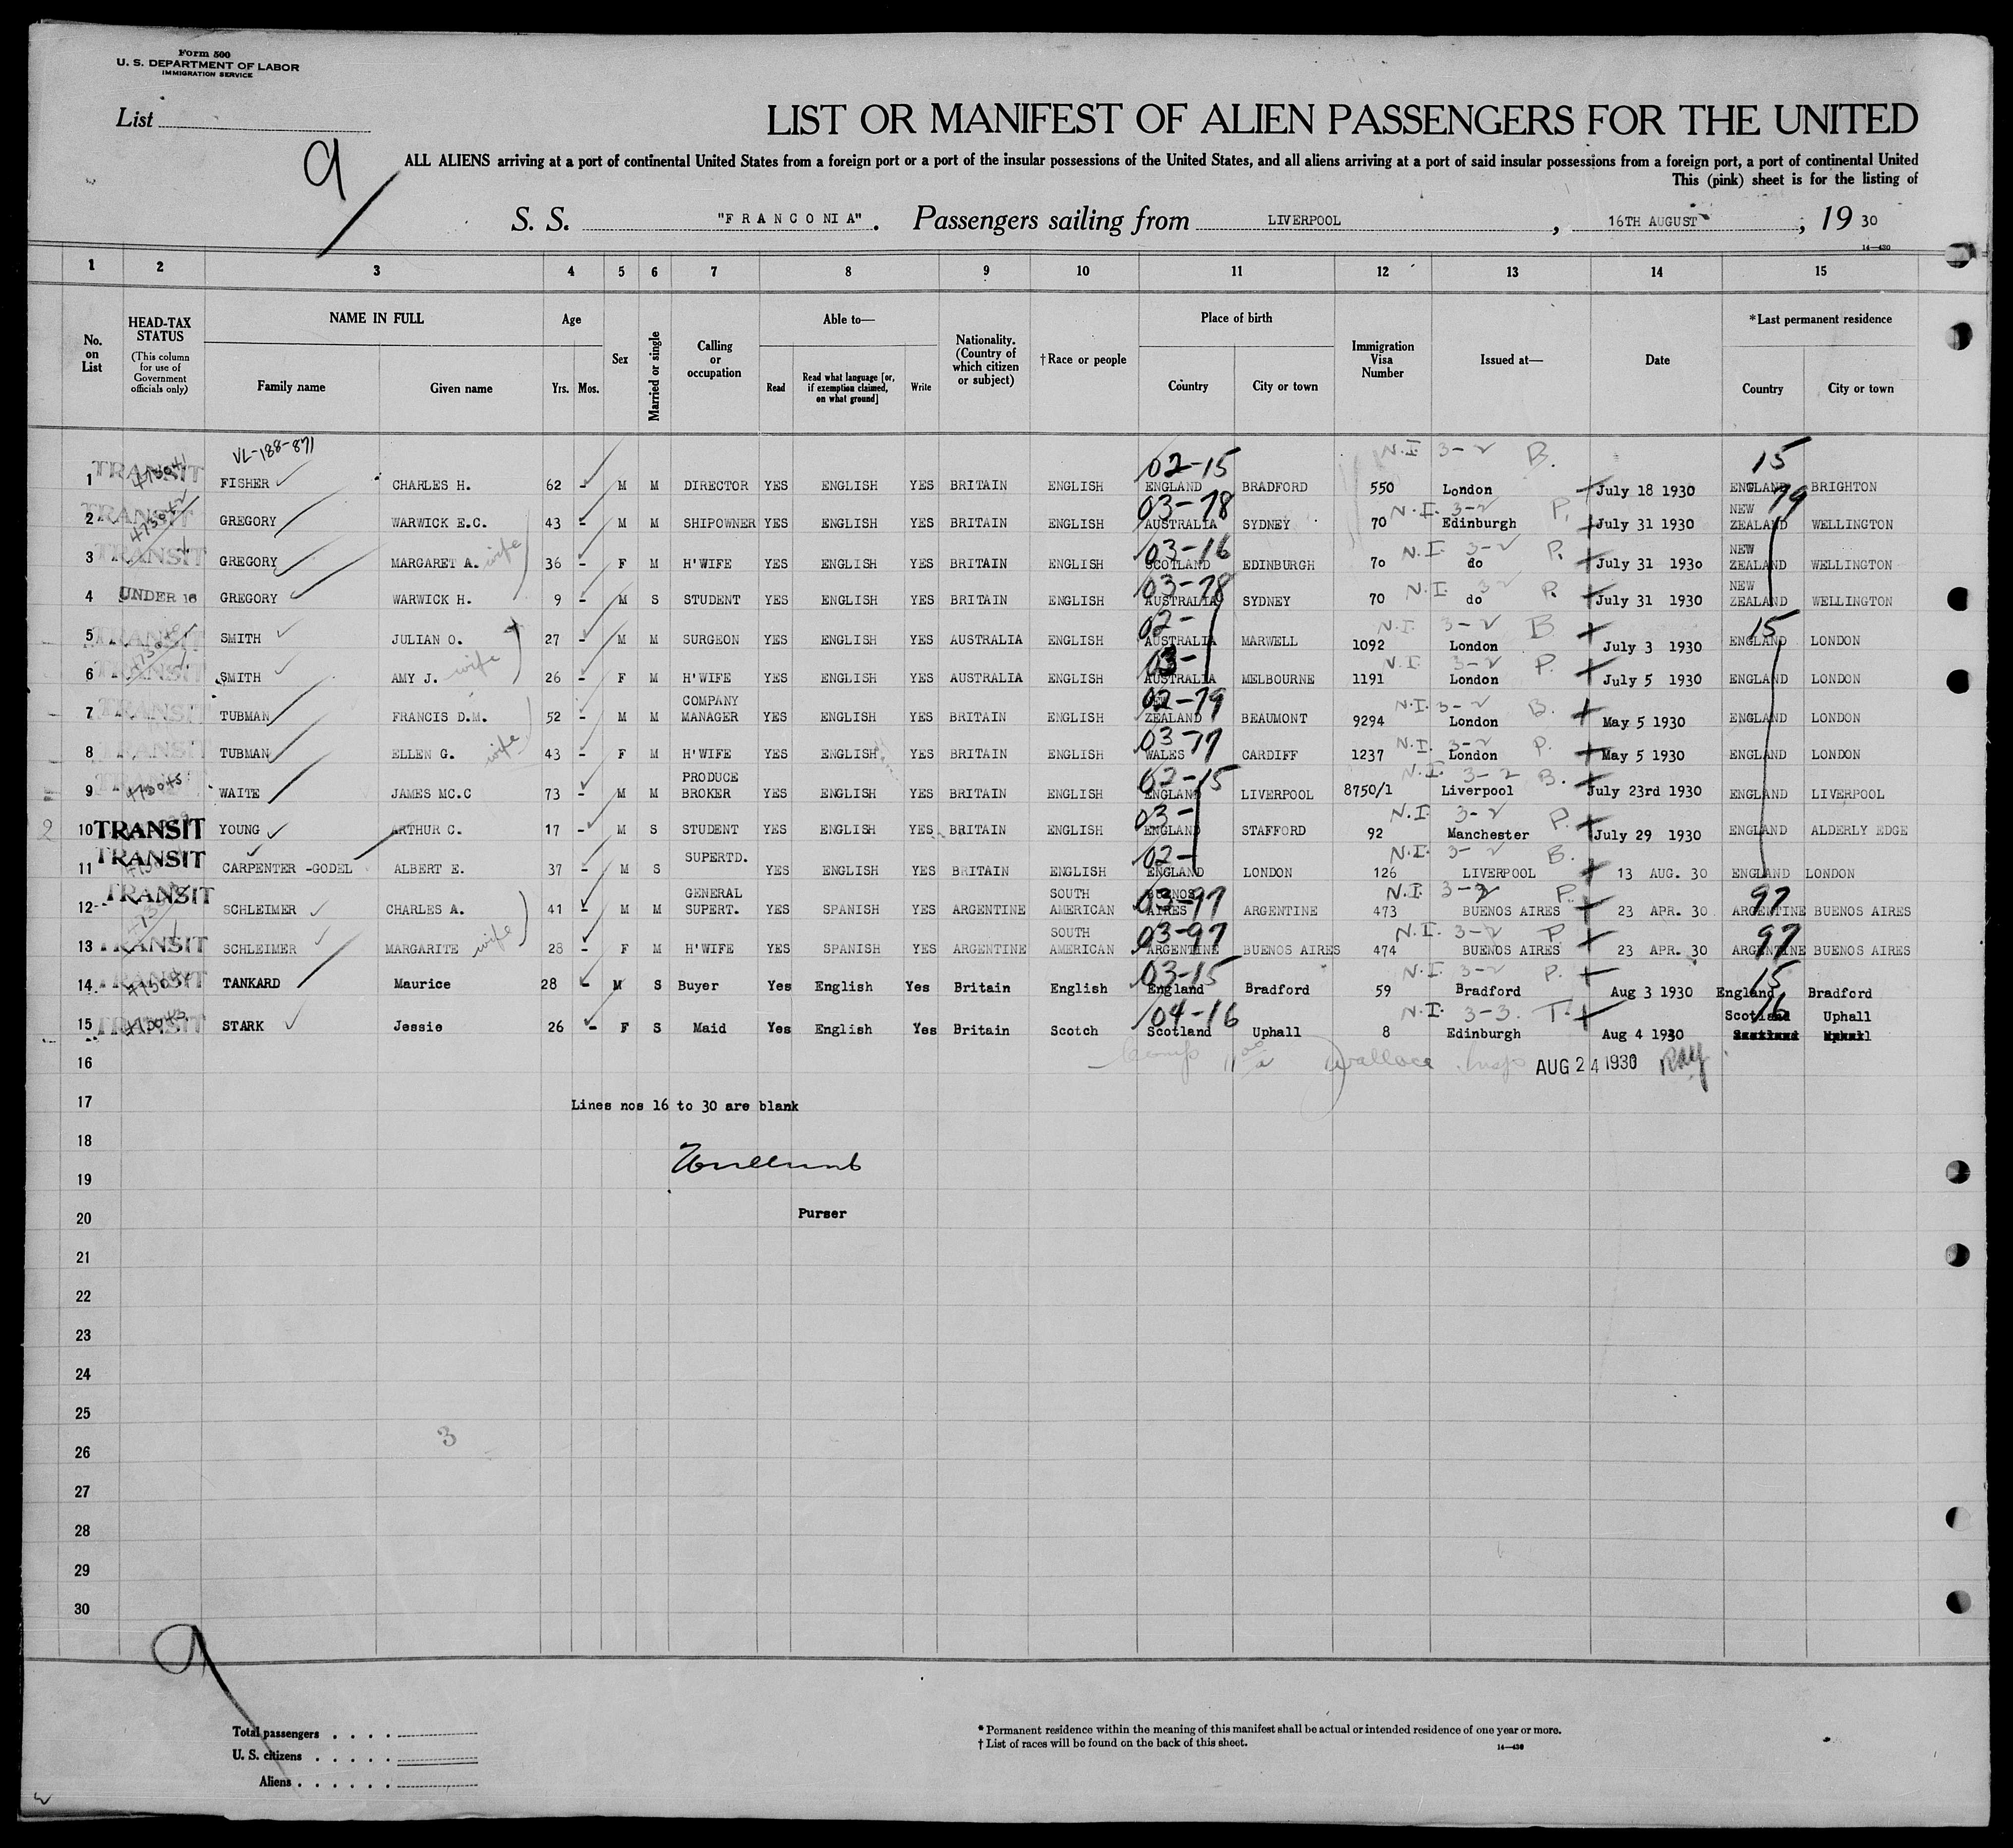 Form 500
U. S. DEPARTMENT OF LABOR
IMMIGRATION SERVICE
List
9
LIST OR MANIFEST OF ALIEN PASSENGERS FOR THE UNITED
ALL ALIENS arriving at a port of continental United States from a foreign port or a port of the insular possessions of the United States, and all aliens arriving at a port of said insular possessions from a foreign port, a port of continental United
This (pink) sheet is for the listing of
S. S. "FRANCONIA". Passengers sailing from LIVERPOOL, 16TH AUGUST, 19 30
14—430
1 2 3 4 5 6 7 8 9 10 11 12 13 14 15
No. on List
HEAD-TAX STATUS
(This column for use of Government officials only)
NAME IN FULL
Family name Given name
Age
Yrs. Mos.
Sex
Married or single
Calling or occupation
Able to—
Read
Read what language [or, if exemption claimed, on what ground]
Write
Nationality. (Country of which citizen or subject)
†Race or people
Place of birth
Country City or town
Immigration Visa Number
Issued at—
Date
*Last permanent residence
Country City or town
VL-188-871
N.I. 3-2 B.
02-15 15
1 TRANSIT FISHER CHARLES H. 62 - M M DIRECTOR YES ENGLISH YES BRITAIN ENGLISH ENGLAND BRADFORD 550 London July 18 1930 ENGLAND BRIGHTON
03-78 N.I. 3-2 P. 79
2 TRANSIT GREGORY WARWICK E.C. 43 - M M SHIPOWNER YES ENGLISH YES BRITAIN ENGLISH AUSTRALIA SYDNEY 70 Edinburgh July 31 1930 NEW ZEALAND WELLINGTON
03-16 N.I. 3-2 P.
3 TRANSIT GREGORY MARGARET A. wife 36 - F M H'WIFE YES ENGLISH YES BRITAIN ENGLISH SCOTLAND EDINBURGH 70 do July 31 1930 NEW ZEALAND WELLINGTON
03-78 N.I. 3-2 P.
4 UNDER 16 GREGORY WARWICK H. 9 - M S STUDENT YES ENGLISH YES BRITAIN ENGLISH AUSTRALIA SYDNEY 70 do July 31 1930 NEW ZEALAND WELLINGTON
02- N.I. 3-2 B. 15
5 TRANSIT SMITH JULIAN O. 27 - M M SURGEON YES ENGLISH YES AUSTRALIA ENGLISH AUSTRALIA MARWELL 1092 London July 3 1930 ENGLAND LONDON
03- N.I. 3-2 P.
6 TRANSIT SMITH AMY J. wife 26 - F M H'WIFE YES ENGLISH YES AUSTRALIA ENGLISH AUSTRALIA MELBOURNE 1191 London July 5 1930 ENGLAND LONDON
02-79 N.I. 3-2 B.
7 TRANSIT TUBMAN FRANCIS D.M. 52 - M M COMPANY MANAGER YES ENGLISH YES BRITAIN ENGLISH ZEALAND BEAUMONT 9294 London May 5 1930 ENGLAND LONDON
03-77 N.I. 3-2 P.
8 TRANSIT TUBMAN ELLEN G. wife 43 - F M H'WIFE YES ENGLISH YES BRITAIN ENGLISH WALES CARDIFF 1237 London May 5 1930 ENGLAND LONDON
02-15 N.I. 3-2 B.
9 TRANSIT 473045 WAITE JAMES MC.C 73 - M M PRODUCE BROKER YES ENGLISH YES BRITAIN ENGLISH ENGLAND LIVERPOOL 8750/1 Liverpool July 23rd 1930 ENGLAND LIVERPOOL
03- N.I. 3-2 P.
2 10 TRANSIT YOUNG ARTHUR C. 17 - M S STUDENT YES ENGLISH YES BRITAIN ENGLISH ENGLAND STAFFORD 92 Manchester July 29 1930 ENGLAND ALDERLY EDGE
02- N.I. 3-2 B.
11 TRANSIT CARPENTER -GODEL ALBERT E. 37 - M S SUPERTD. YES ENGLISH YES BRITAIN ENGLISH ENGLAND LONDON 126 LIVERPOOL 13 AUG. 30 ENGLAND LONDON
03-97 N.I. 3-2 P. 97
12 TRANSIT SCHLEIMER CHARLES A. 41 - M M GENERAL SUPERT. YES SPANISH YES ARGENTINE SOUTH AMERICAN BUENOS AIRES ARGENTINE 473 BUENOS AIRES 23 APR. 30 ARGENTINE BUENOS AIRES
03-97 N.I. 3-2 P 97
13 TRANSIT SCHLEIMER MARGARITE wife 28 - F M H'WIFE YES SPANISH YES ARGENTINE SOUTH AMERICAN ARGENTINE BUENOS AIRES 474 BUENOS AIRES 23 APR. 30 ARGENTINE BUENOS AIRES
03-15 N.I. 3-2 P. 15
14 TRANSIT TANKARD Maurice 28 - M S Buyer Yes English Yes Britain English England Bradford 59 Bradford Aug 3 1930 England Bradford
04-16 N.I. 3-3. T. 16
15 TRANSIT 473043 STARK Jessie 26 - F S Maid Yes English Yes Britain Scotch Scotland Uphall 8 Edinburgh Aug 4 1930 Scotland Uphall
16 Wallace Insp AUG 24 1930
17 Lines nos 16 to 30 are blank
18
19
20 Purser
21
22
23
24
25
26 3
27
28
29
30
9
Total passengers
U. S. citizens
Aliens
* Permanent residence within the meaning of this manifest shall be actual or intended residence of one year or more.
† List of races will be found on the back of this sheet.
14—430